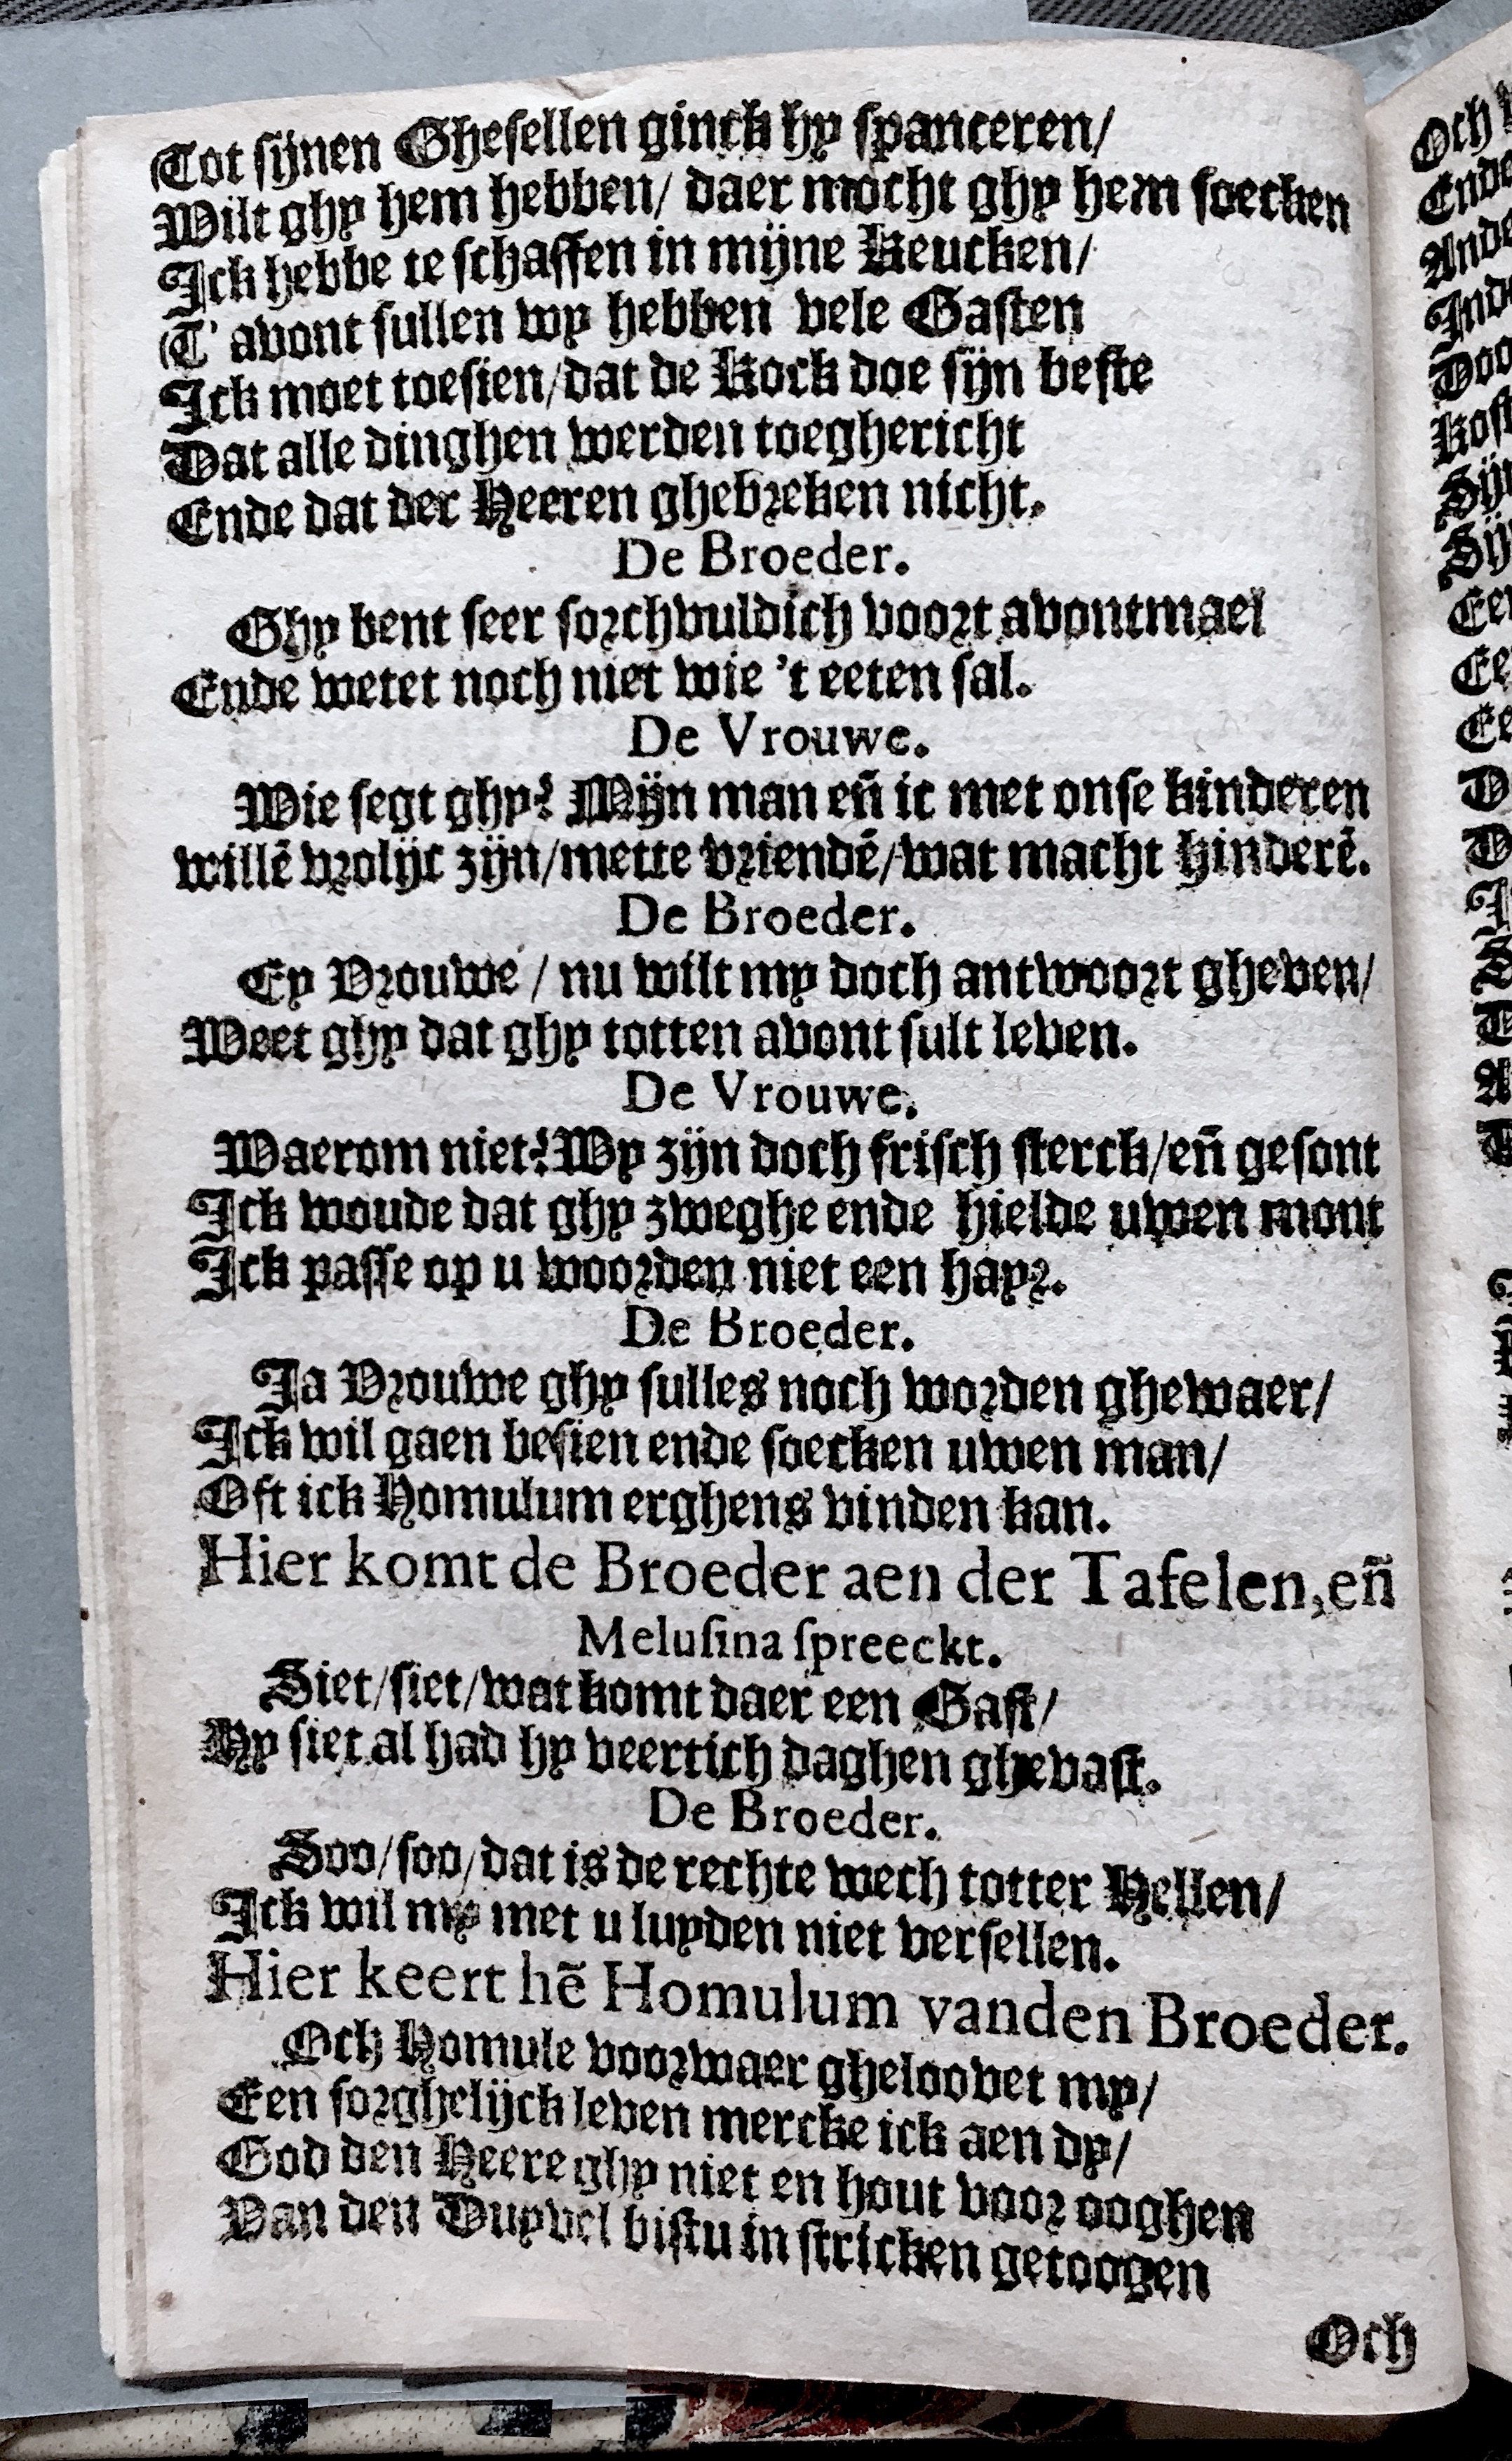 Tot sijnen Ghesellen ginck hy spanceren/
Wilt ghy hem hebben/ daer mocht ghy hem soecken
Ick hebbe te schaffen in mijne Keucken/
T' avont sullen wy hebben vele Gasten
Ick moet toesien/dat de Kock doe sijn beste
Dat alle dinghen werden toeghericht
Ende dat der Heeren ghebreken nicht.
De Broeder.
Ghy bent seer sorchvuldich voort avontmael
Ende wetet noch niet wie 't eeten sal.
De Vrouwe.
Wie segt ghy? Mijn man eñ ic met onse kinderen
willē vrolijc zijn/mette vriendē/wat macht hinderē.
De Broeder.
Ey Vrouwe / nu wilt my doch antwoort gheven/
Weet ghy dat ghy totten avont sult leven.
De Vrouwe.
Waerom niet? Wy zijn doch frisch sterck/eñ gesont
Ick woude dat ghy zweghe ende hielde uwen mont
Ick passe op u woorden niet een hayr.
De Broeder.
Ja Vrouwe ghy sulles noch worden ghewaer/
Ick wil gaen besien ende soecken uwen man/
Oft ick Homulum erghens vinden kan.
Hier komt de Broeder aen der Tafelen, eñ
Melusina spreeckt.
Siet/siet/wat komt daer een Gast/
Hy siet al had hy veertich daghen ghevast.
De Broeder.
Soo/soo/dat is de rechte wech totter Hellen/
Ick wil my met u luyden niet versellen.
Hier keert hē Homulum vanden Broeder.
Och Homule voorwaer gheloovet my/
Een sorghelijck leven mercke ick aen dy/
God den Heere ghy niet en hout voor ooghen
Van den Duyvel bistu in stricken getoogen
Och